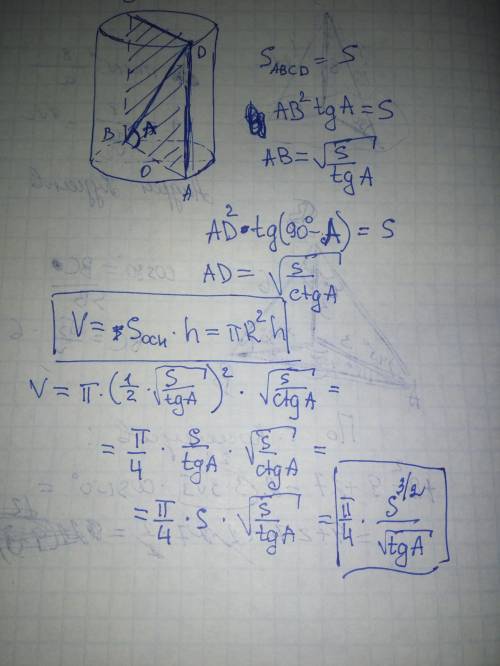 D
B A
O
A
S_ABCD = S
AB² tg A = S
AB = √(S/tg A)
AD² · tg(90° - A) = S
AD = √(S/ctg A)
V = S_осн · h = πR²h
V = π · (1/2 · √(S/tg A))² · √(S/ctg A) =
= π/4 · S/tg A · √(S/ctg A) =
= π/4 · S · √(S/tg A) = π/4 · S^(3/2)/√(tg A)